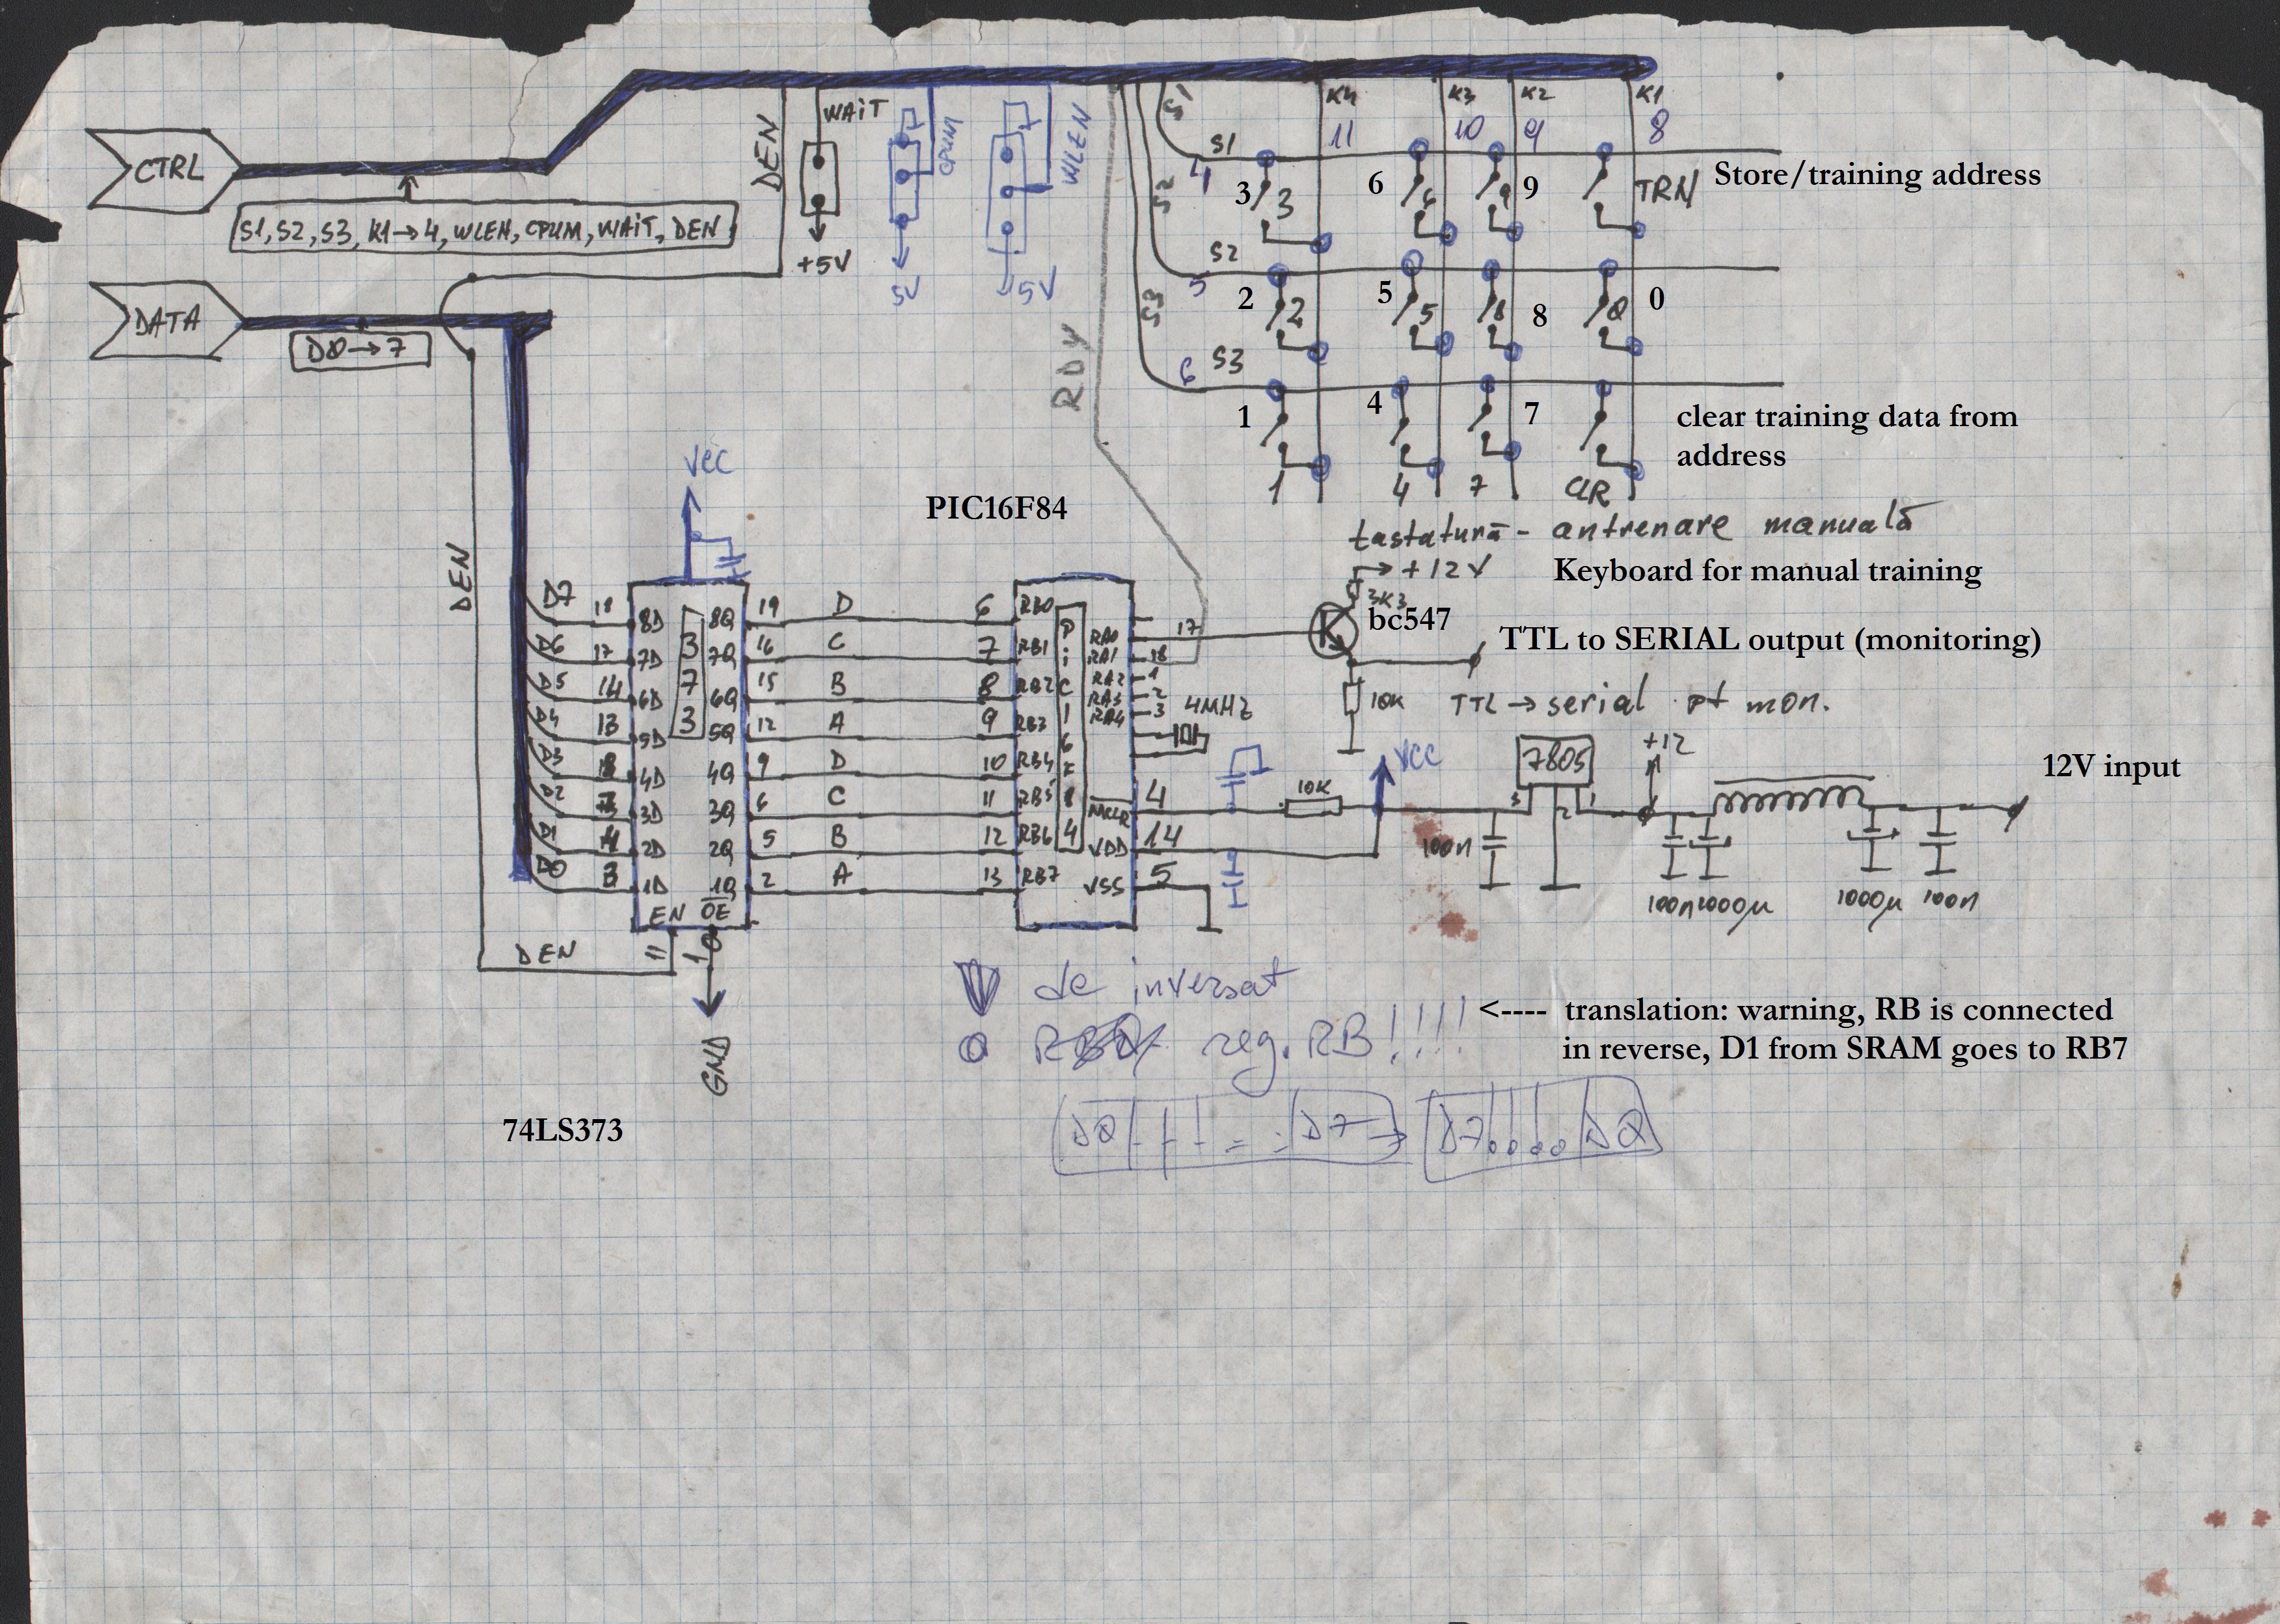 CTRL
S1, S2, S3, K1→4, WLEN, CPUM, WAIT, DEN
DATA
DØ→7
DEN
WAIT
+5V
CPUM
5V
WLEN
5V
Rby
S1
S2
S3
K4
K3
K2
K1
11
10
9
8
4
S1
3
3
6
6
9
9
TRN
Store/training address
5
S2
2
2
5
5
8
8
Ø
0
6
S3
1
4
7
clear training data from
address
1
4
7
CLR
tastatură - antrenare manuală
Keyboard for manual training
VCC
PIC16F84
DEN
D7 18 8D 8Q 19 D 6 RB0
D6 17 7D 7Q 16 C 7 RB1
D5 14 6D 6Q 15 B 8 RB2
D4 13 5D 5Q 12 A 9 RB3
D3 4D 4Q 9 D 10 RB4
D2 3D 3Q 6 C 11 RB5
D1 2D 2Q 5 B 12 RB6
D0 3 1D 1Q 2 A 13 RB7
373
EN OE
DEN
GND
Pic16F84
RA0 17
RA1 18
RA2 1
RA3 2
RA4 3
4MHz
MCLR 4
VDD 14
VSS 5
+12V
3K3
bc547
TTL to SERIAL output (monitoring)
10K
TTL → serial pt mon.
10K
VCC
7805
3
2
1
+12
12V input
100n
100n
1000µ
1000µ
100n
de inversat
reg. RB!!!!
<---- translation: warning, RB is connected
in reverse, D1 from SRAM goes to RB7
DØ D7 → D7 DØ
74LS373